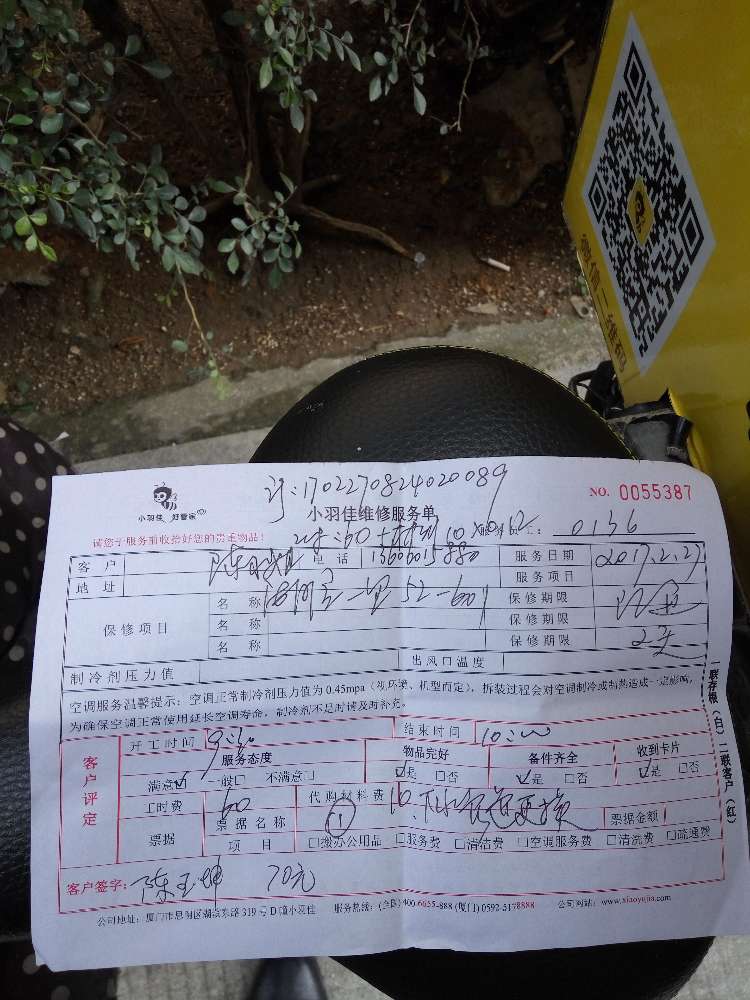 微信二维码
订:170227082402089
小羽佳 好管家
小羽佳维修服务单
NO. 0055387
请您于服务前收拾好您的贵重物品!
工:0136
客 户
电 话 15606015880
服务日期 2017.2.27
地 址
服务项目
保修项目
名 称
保修期限
名 称
保修期限
名 称
保修期限
制冷剂压力值
出风口温度
空调服务温馨提示:空调正常制冷剂压力值为 0.45mpa(视环境、机型而定),拆装过程会对空调制冷或制热造成一定影响,
为确保空调正常使用延长空调寿命,制冷剂不足时请及时补充。
一联存根(白)二联客户(红)
客户评定
开工时间 9:30
结束时间 10:00
服务态度
物品完好
备件齐全
收到卡片
满意☑ 一般□ 不满意□
☑是 □否
☑是 □否
☑是 □否
工时费 60
代购材料费 10.
票据
票据名称 ①
票据金额
项 目
□缴办公用品 □服务费 □清洁费 □空调服务费 □清洗费 □疏通费
客户签字: 陈玉坤 70元
公司地址:厦门市思明区湖滨东路 319 号 D 幢小羽佳 服务热线:(全国)400-6655-888 (厦门) 0592-5178888 公司网站:www.xiaoyujia.com